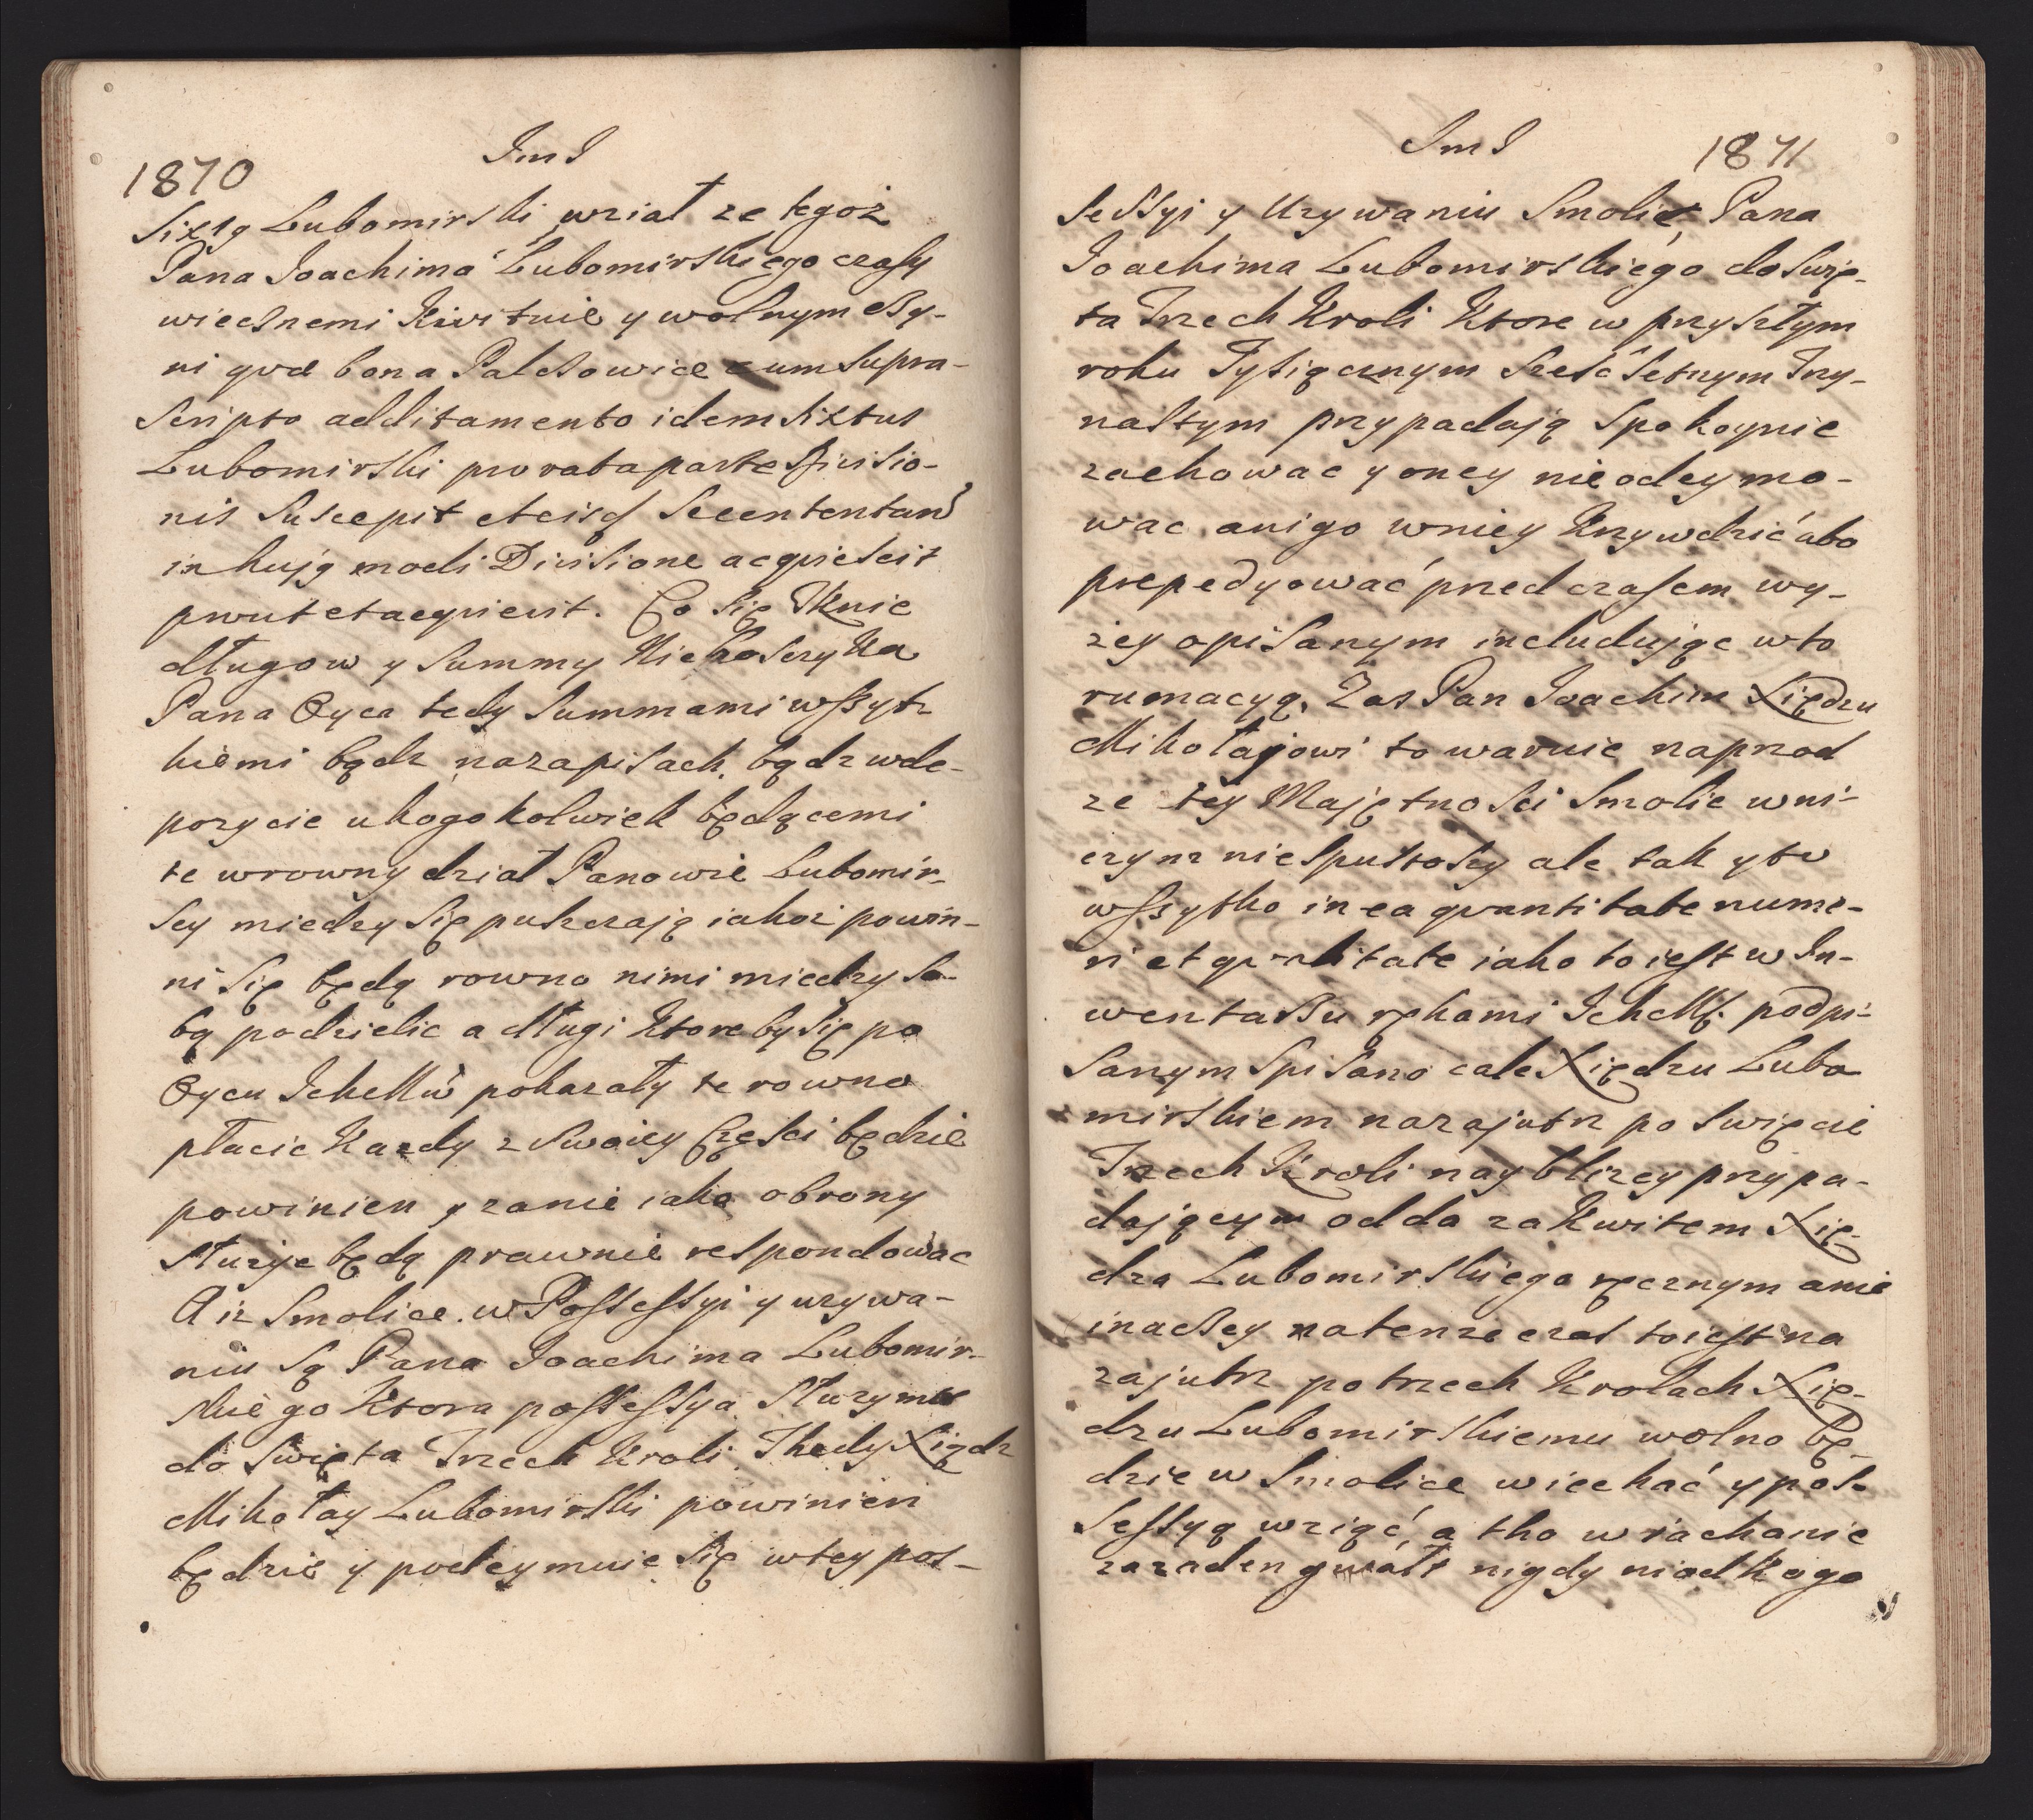 1870
ImI
Sixtg Lubomirski wział ze tegoż
Pana Joachima Lubomirskiego czasy
wiecsnemi Kwituie y wolnym csy-
ni qvæ bona Palcsowice cum supra-
scripto additamento idem Sixtus
Lubomirski pro rata parte Divisio-
nis suscepit et eisd
in hujg modi Divisione acqviescit
prout et acqvievit. Co się Tknie
długow y summy
Pana Oyca tedy summami wszyt-
kiemi bądz na zapisach, bądz w de-
pozycie u kogo kolwiek będącemi
te w rowny dział Panowie Lubomir-
scy miedzy się puszczają iakoż powin-
ni się będą rowno nimi miedzy so-
bą podzielic a długi Ktore by się po
Oycu IchMM pokazały te rowno
płacic Kazdy z swoiey Części będzie
powinien y zanie iako obrony
służą będą prawnie respondowac
A iz Smolice w Possessyi y uzywa-
niu są Pana Joachima Lubomir-
skiego Ktora possessya służy mu
do święta Trzech Kroli Thedy Xiądz
Mikołay Lubomirski powinien
będzie y podeymuie się w tey pos-
ImI
1871
sessyi y Uzywaniu Smolic Pana
Joachima Lubomirskiego do świę-
ta Trzech Kroli Ktore w przyszłym
roku Tysiącznym sześć setnym Trzy-
nastym przypadają spokoynie
zachowac y oney nie odeymo-
wac, ani go w niey Krzywdzić abo
prepedyować przed czasem wy-
żey opisanym includując w to
rumacyą. Zas Pan Joachim Xiędzu
Mikołajowi to waruie naprzod
ze tey Majętności Smolic w ni-
czym nie spustoszy ale tak y to
wszytko in ea qvantitate nume-
ri et qvalitate iako to iest w In-
wentaszu rękami IchMM podpi-
sanym spisano cale Xiędzu Lubo
mirskiem nazajutrz po święcie
Trzech Kroli naybliżey przypa-
dającym odda za Kwitem Xię-
dza Lubomirskiego ręcznym a nie
inacsey natenze czas to iest na
zajutrz po trzech Krolach Xię-
dzu Lubomirskiemu wolno bę-
dzie w Smolice wiechać y pos-
sessyą wziąć, a tho wiachanie
za zaden gwałt nigdy ni od Kogo